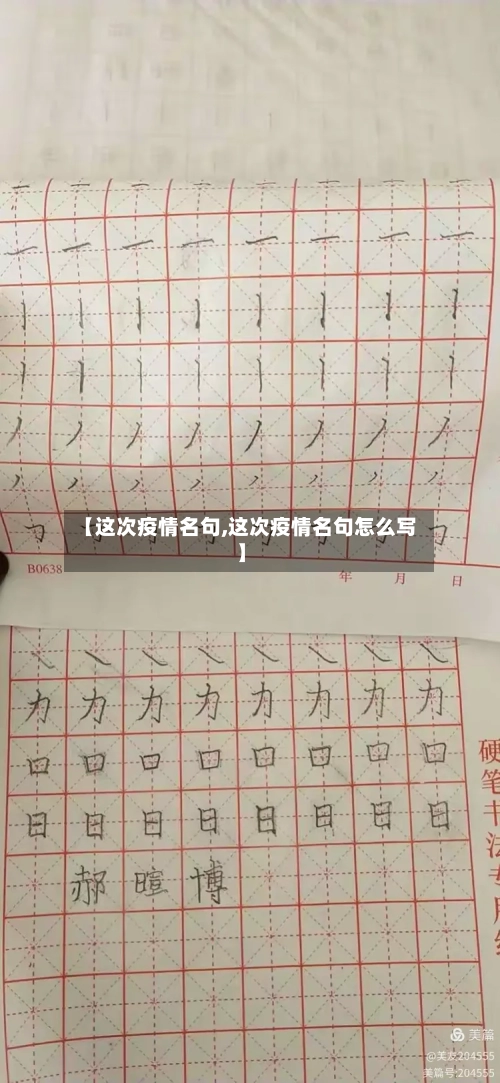 一 一 一 一 一 一 一 一
一 一 一 一 一 一 一 一
丨 丨 丨 丨 丨 丨 丨 丨
丨 丨 丨 丨 丨 丨 丨 丨
丿 丿 丿 丿 丿 丿 丿 丿
丿 丿 丿 丿 丿 丿 丿 丿
【这次疫情名句,这次疫情名句怎么写
】
B0638 年 月 日
㇏ ㇏ ㇏ ㇏ ㇏ ㇏ ㇏ ㇏
力 力 力 力 力 力 力 力
日 日 日 日 日 日 日 日
郝 暄 博
硬笔书法专用纸
美篇
@美友204555
美篇号:204555